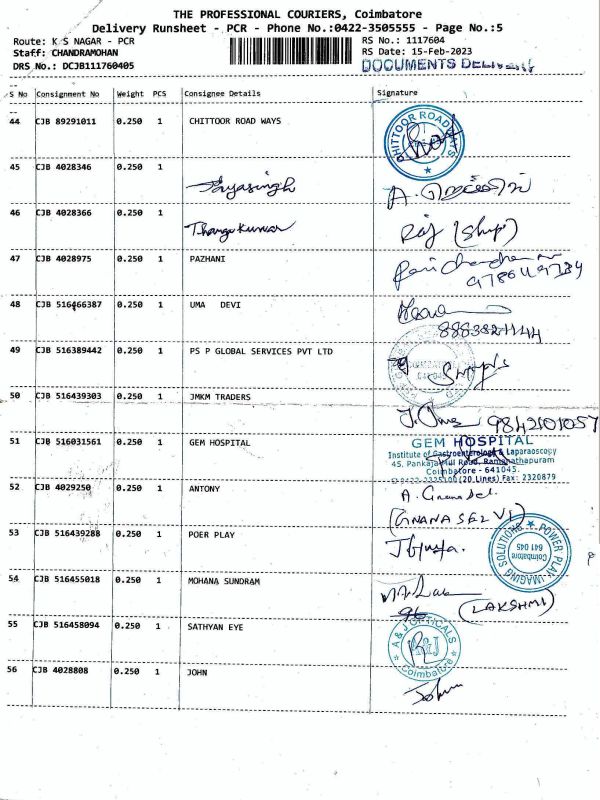 THE PROFESSIONAL COURIERS, Coimbatore
Delivery Runsheet - PCR - Phone No.:0422-3505555 - Page No.:5
Route: K S NAGAR - PCR RS No.: 1117604
Staff: CHANDRAMOHAN RS Date: 15-Feb-2023
DRS No.: DCJB111760405 DOCUMENTS DELIVERY
S No Consignment No Weight PCS Consignee Details Signature
44 CJB 89291011 0.250 1 CHITTOOR ROAD WAYS CHITTOOR ROAD WAYS
45 CJB 4028346 0.250 1
46 CJB 4028366 0.250 1 Thangakumar Raj (Shup)
47 CJB 4028975 0.250 1 PAZHANI
48 CJB 516466387 0.250 1 UMA DEVI
49 CJB 516389442 0.250 1 PS P GLOBAL SERVICES PVT LTD
50 CJB 516439303 0.250 1 JMKM TRADERS 9842101057
51 CJB 516031561 0.250 1 GEM HOSPITAL GEM HOSPITAL
Institute of Gastroenterology & Laparaoscopy
45, Pankaja Mill Road, Ramanathapuram
Coimbatore - 641045.
2325100 (20 Lines) Fax: 2320879
52 CJB 4029250 0.250 1 ANTONY A. Gnana Sel.
(GNANA SELVI)
53 CJB 516439288 0.250 1 POER PLAY POWER PLAY IMAGING SOLUTIONS Coimbatore 641 045
54 CJB 516455018 0.250 1 MOHANA SUNDRAM (LAKSHMI)
55 CJB 516458094 0.250 1 SATHYAN EYE A & J OPTICALS A&J Coimbatore
56 CJB 4028808 0.250 1 JOHN John